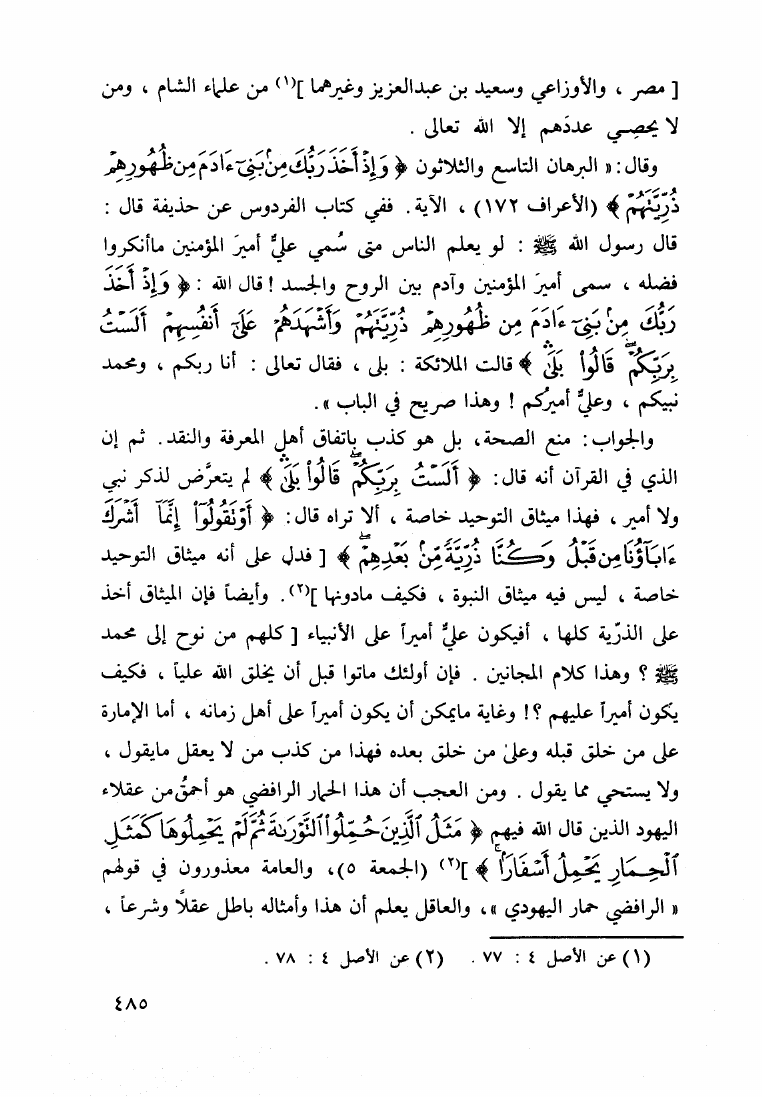 [ مصر ، والأوزاعي وسعيد بن عبدالعزيز وغيرهما ](١) من علماء الشام ، ومن
لا يحصي عددَهم إلا الله تعالى .
وقال : « البرهان التاسع والثلاثون ﴿ وَإِذْ أَخَذَ رَبُّكَ مِنۢ بَنِىٓ ءَادَمَ مِن ظُهُورِهِمْ
ذُرِّيَّتَهُمْ ﴾ (الأعراف ١٧٢) ، الآية. ففي كتاب الفردوس عن حذيفة قال :
قال رسول الله ﷺ : لو يعلم الناس متى سُمي عليٌّ أميرَ المؤمنين ماأنكروا
فضله ، سمى أميرَ المؤمنين وآدم بين الروح والجسد ! قال الله : ﴿ وَإِذْ أَخَذَ
رَبُّكَ مِنۢ بَنِىٓ ءَادَمَ مِن ظُهُورِهِمْ ذُرِّيَّتَهُمْ وَأَشْهَدَهُمْ عَلَىٰٓ أَنفُسِهِمْ أَلَسْتُ
بِرَبِّكُمْ ۖ قَالُوا۟ بَلَىٰ ۛ ﴾ قالت الملائكة : بلى ، فقال تعالى : أنا ربكم ، ومحمد
نبيكم ، وعليٌّ أميرُكم ! وهذا صريح في الباب ».
والجواب : منع الصحة، بل هو كذب باتفاق أهل المعرفة والنقد. ثم إن
الذي في القرآن أنه قال: ﴿ أَلَسْتُ بِرَبِّكُمْ ۖ قَالُوا۟ بَلَىٰ ۛ ﴾ لم يتعرَّض لذكر نبي
ولا أمير ، فهذا ميثاق التوحيد خاصة ، ألا تراه قال: ﴿ أَوْ تَقُولُوٓا۟ إِنَّمَآ أَشْرَكَ
ءَابَآؤُنَا مِن قَبْلُ وَكُنَّا ذُرِّيَّةً مِّنۢ بَعْدِهِمْ ۖ ﴾ [ فدل على أنه ميثاق التوحيد
خاصة ، ليس فيه ميثاق النبوة ، فكيف مادونها ](٢). وأيضاً فإن الميثاق أخذ
على الذرّية كلها ، أفيكون عليٌّ أميراً على الأنبياء [ كلهم من نوح إلى محمد
ﷺ ؟ وهذا كلام المجانين . فإن أولئك ماتوا قبل أن يخلق الله علياً ، فكيف
يكون أميراً عليهم ؟! وغاية مايمكن أن يكون أميراً على أهل زمانه ، أما الإمارة
على من خلق قبله وعلىٰ من خلق بعده فهذا من كذب من لا يعقل مايقول ،
ولا يستحي مما يقول . ومن العجب أن هذا الحمار الرافضي هو أحمقُ من عقلاء
اليهود الذين قال الله فيهم ﴿ مَثَلُ ٱلَّذِينَ حُمِّلُوا۟ ٱلتَّوْرَىٰةَ ثُمَّ لَمْ يَحْمِلُوهَا كَمَثَلِ
ٱلْحِمَارِ يَحْمِلُ أَسْفَارًۢا ۚ ﴾ ](٢) (الجمعة ٥)، والعامة معذورون في قولهم
« الرافضي حمار اليهودي »، والعاقل يعلم أن هذا وأمثاله باطل عقلاً وشرعاً ،
(١) عن الأصل ٤ : ٧٧ . (٢) عن الأصل ٤ : ٧٨ .
٤٨٥